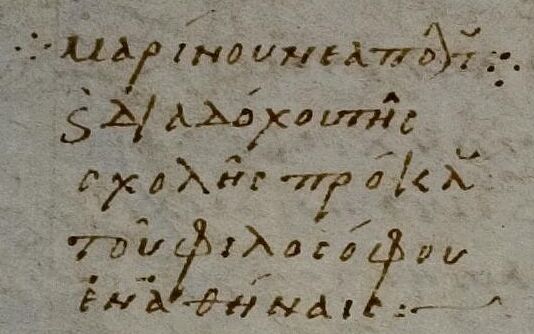 ∴ μαρίνου νεαπολῖ ∴
ϛ διαδόχου τῆς
σχολῆς πρόκλ
τοῦ φιλοσόφου
ἐν ἀθήναις :~